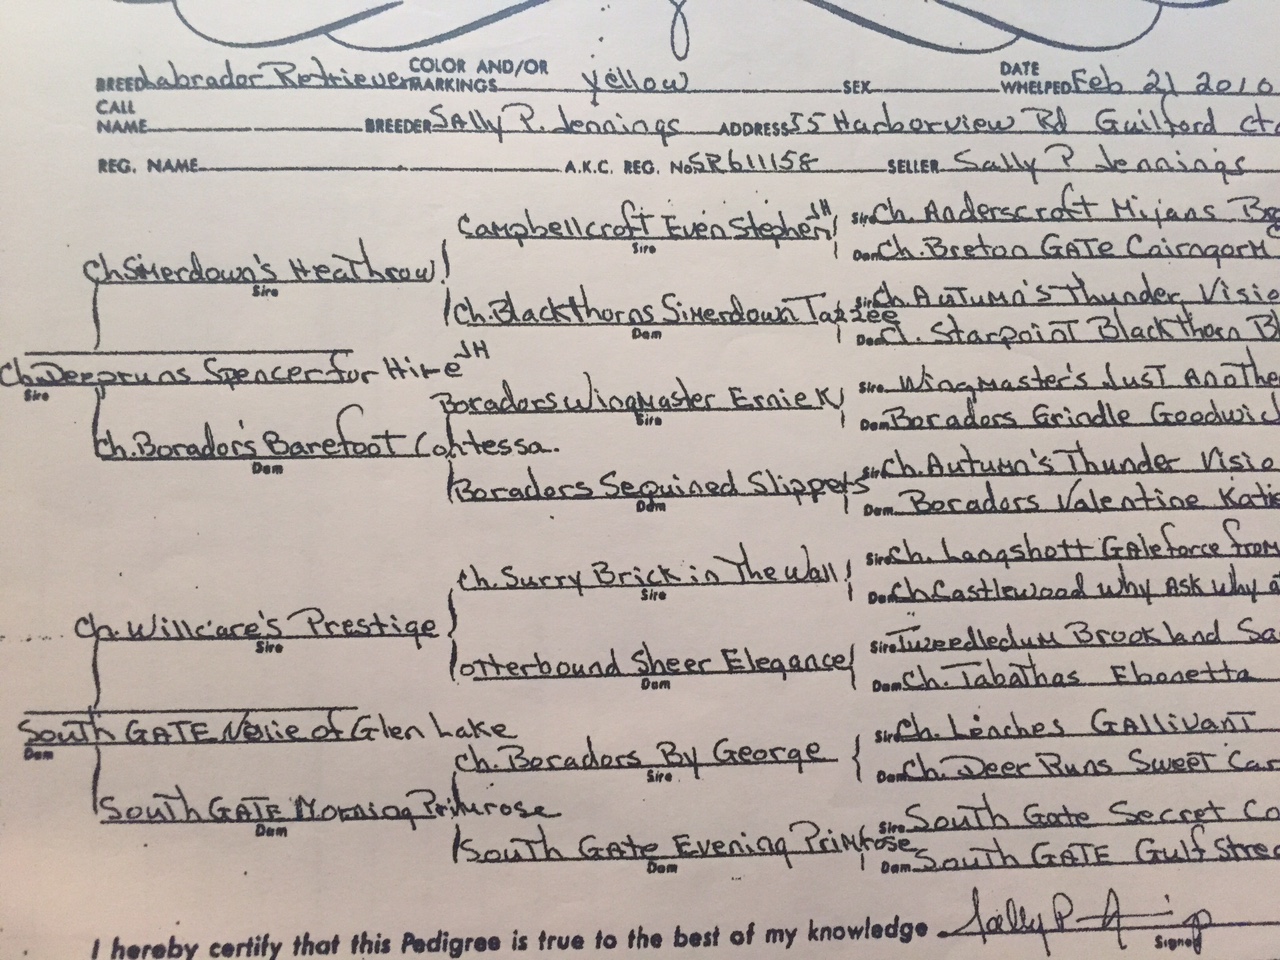 BREED Labrador Retriever COLOR AND/OR MARKINGS Yellow SEX DATE WHELPED Feb 21 2010
CALL NAME BREEDER Sally P. Jennings ADDRESS 55 Harborview Rd Guilford Ct.
REG. NAME A.K.C. REG. No. SR611158 SELLER Sally P Jennings
Campbellcroft Even Stephen JH
Sire
Sire Ch. Anderscroft Mijans
Dam Ch. Breton GATE Cairngorm
Ch Simerdown's Heathrow
Sire
Ch. Blackthorns Simerdown Tazzee
Dam
Sire Ch. Autumn's Thunder Visio
Dam Ch. Starpoint Blackthorn Bl
Ch. Deepruns Spencer for Hire JH
Sire
Boradors Wingmaster Ernie K
Sire
Sire Wingmaster's Just Anothe
Dam Boradors Grindle Goodwic
Ch. Borador's Barefoot Contessa.
Dam
Boradors Sequined Slippers
Dam
Sire Ch. Autumn's Thunder Visio
Dam Boradors Valentine Katie
Ch. Surry Brick in The Wall
Sire
Sire Ch. Langshott Gale force from
Dam Ch Castlewood Why Ask Why
Ch. Willcare's Prestige
Sire
Otterbound Sheer Elegance
Dam
Sire Tweedledum Brookland Sa
Dam Ch. Tabathas Ebonetta
South GATE Nellie of Glen Lake
Dam
Ch. Boradors By George
Sire
Sire Ch. Lenches GALLIVANT
Dam Ch. Deer Runs Sweet Car
South GATE Morning Primrose
Dam
South Gate Evening Primrose
Dam
Sire South Gate Secret Co
Dam South GATE Gulf Strea
I hereby certify that this Pedigree is true to the best of my knowledge
Signed